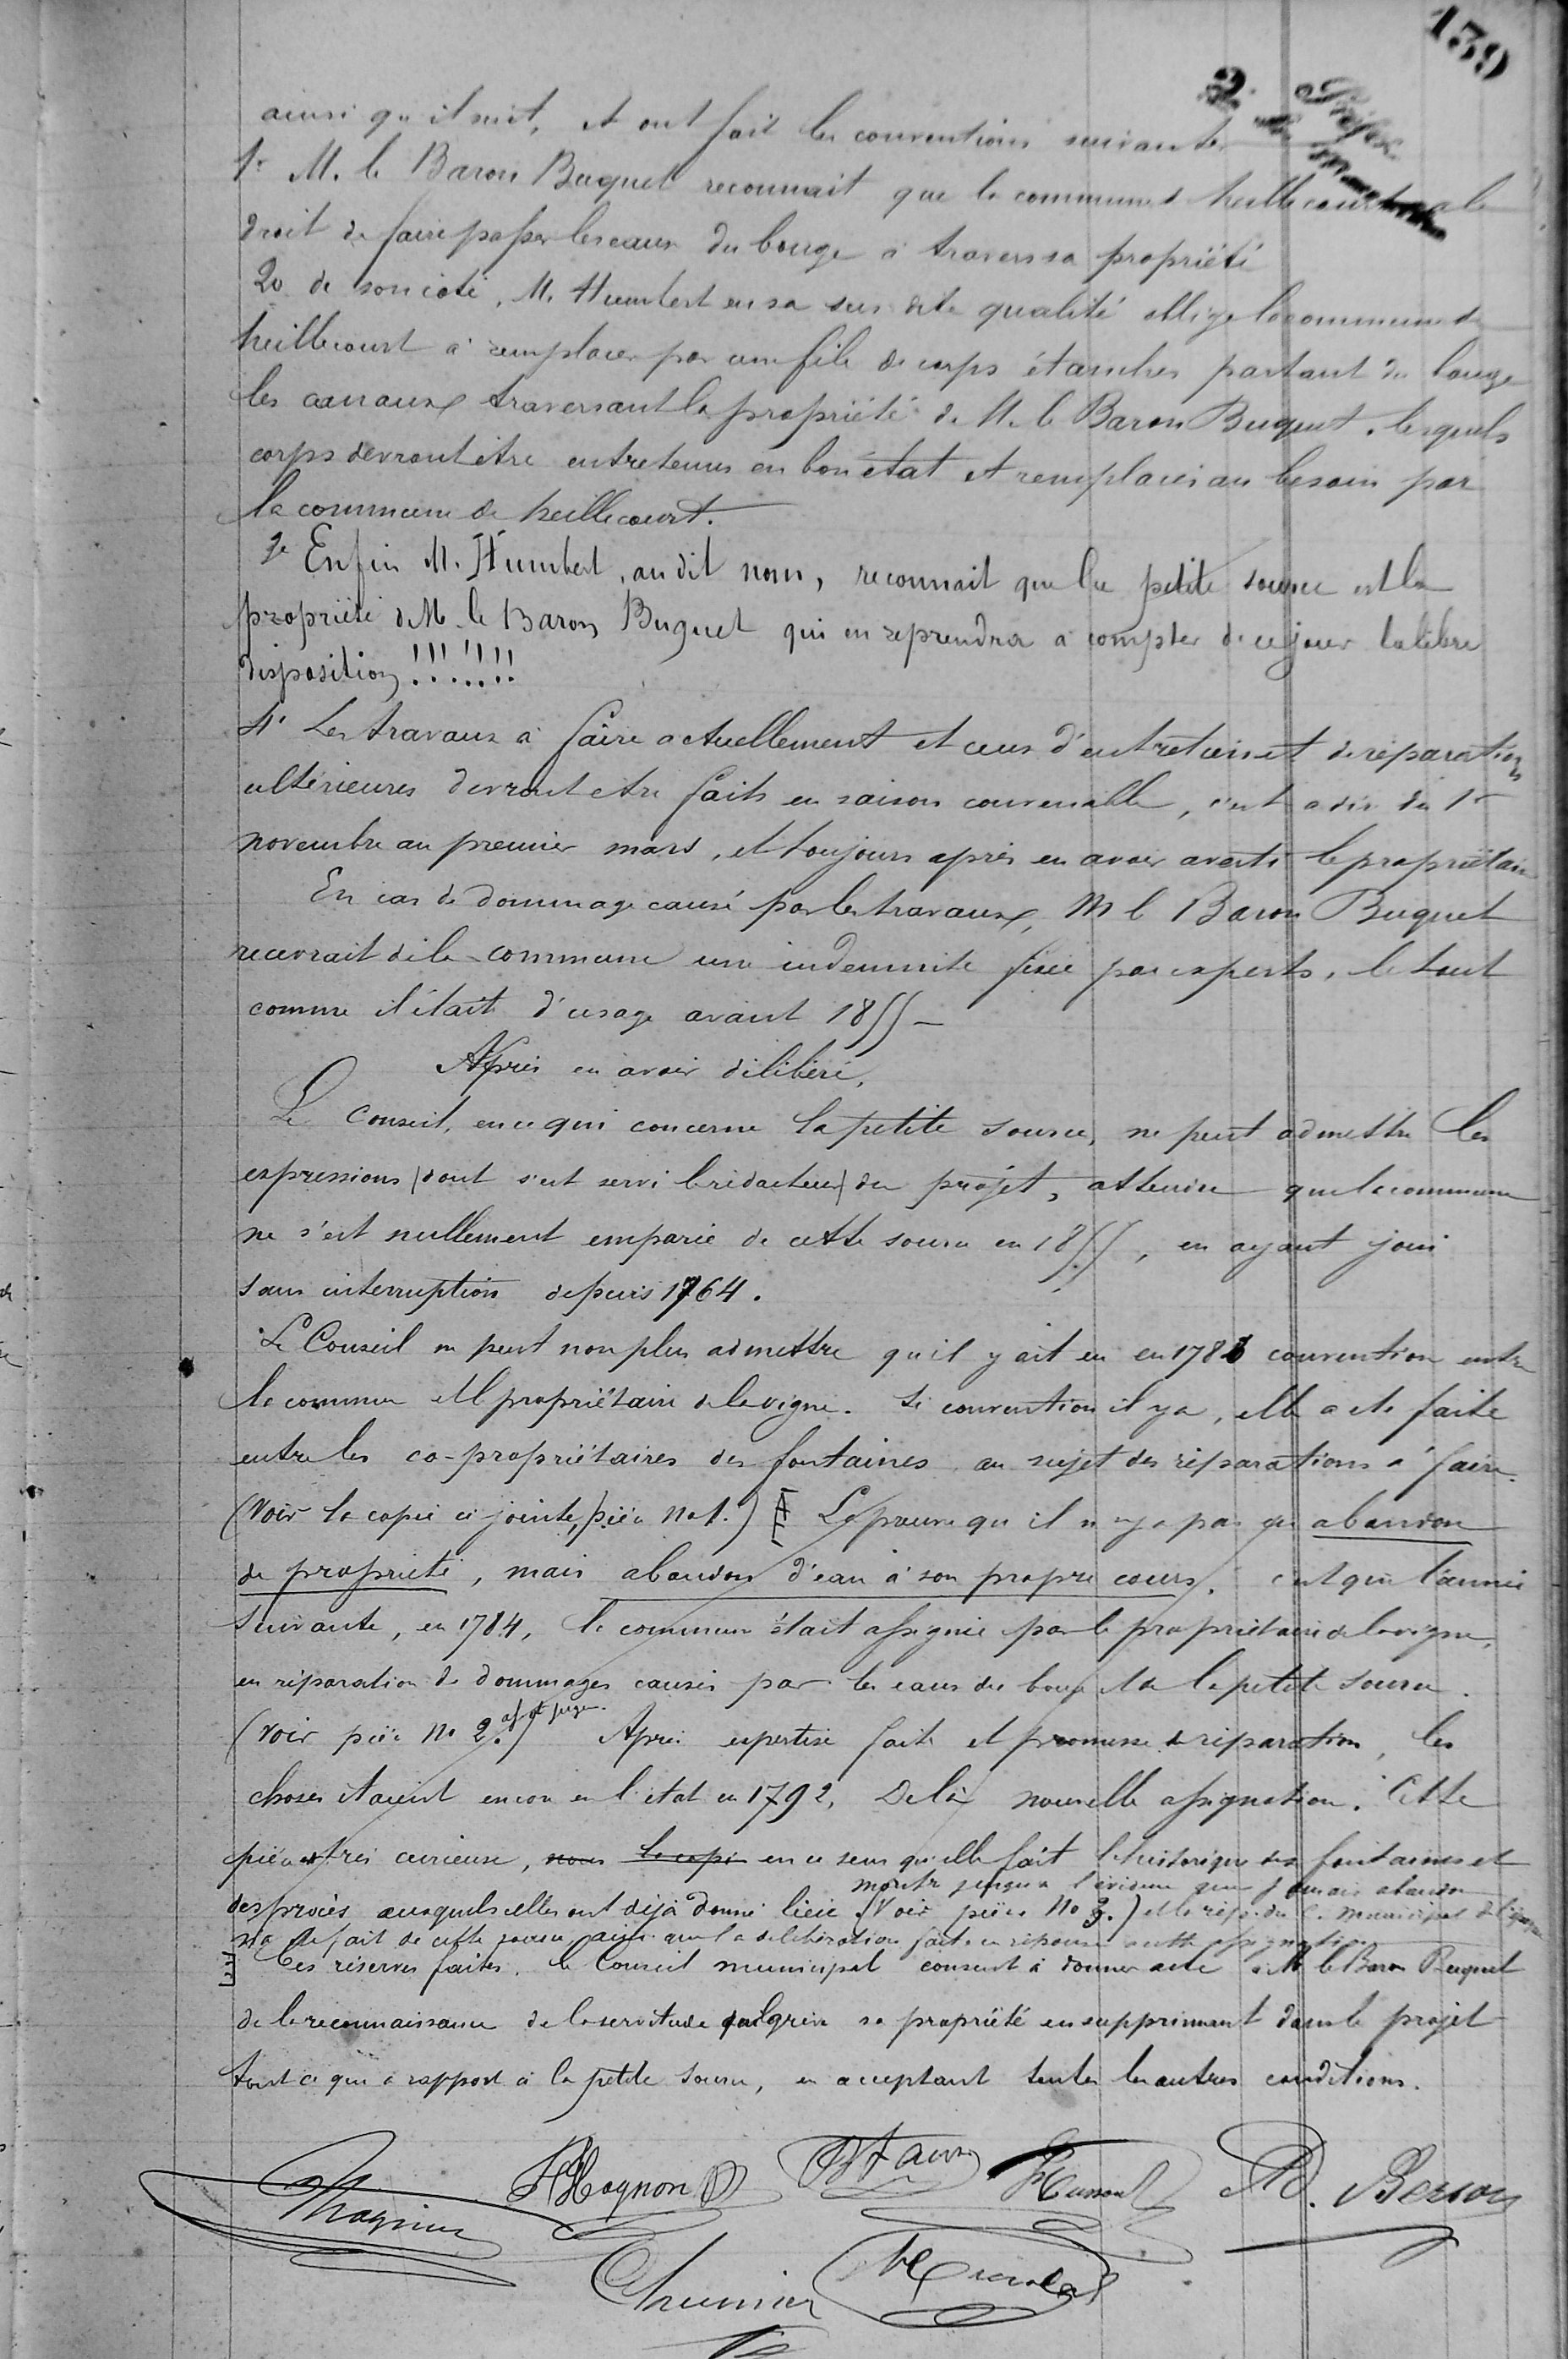 139
2
ainsi qu'il suit, et ont fait les conventions suivantes
1° M. le Baron Buquet reconnait que la commune d heillecourt a le
droit de faire passer les eaux du bouge à travers sa propriété
2o de son coté, M. Humbert en sa sus dite qualité oblige la commune de
heillecourt à remplacer par une file de corps étanches partant du bouge
les canaux traversant la propriété de M. le Baron Buquet, lesquels
corps devront être entretenus en bon état et remplacés au besoin par
la commune de heillecourt.
3e Enfin M. Humbert, au dit nom, reconnait que la petite source est la
propriété de M. le Baron Buquet qui en reprendra à compter de ce jour la libre
disposition !!!!!!!
4° Les travaux à faire actuellement et ceux d'entretien et de réparations
ultérieures devront etre faits en saison convenable, c'est a dire du 1er
novembre au premier mars, et toujours après en avoir averti le propriétaire
En cas de dommage causé par les travaux, M le Baron Buquet
recevrait de la commune une indemnité fixée par experts, le tout
comme il était d'usage avant 1855 —
Après en avoir délibéré,
Le Conseil, en ce qui concerne la petite source, ne peut admettre les
expressions (dont s'est servi le rédacteur) du projet, attendu que la commune
ne s'est nullement emparée de cette source en 1855, en ayant joui
sans interruption depuis 1764.
Le Conseil ne peut non plus admettre qu'il y ait eu en 1783 convention entre
la commune et le propriétaire de la vigne. Si convention il y a, elle a été faite
entre les co-propriétaires des fontaines au sujet des réparations à faire.
(Voir la copie ci jointe, pièce No 1.) La preuve qu'il n'y a pas eu abandon
de propriété, mais abandon d'eau à son propre cours, c'est que l'année
suivante, en 1784, la commune était assignée par le propriétaire de la vigne,
en réparation de dommages causés par les eaux du bouge et de la petite source.
(Voir pièce No 2.) Après expertise faite et promesse de réparation, les
choses étaient encore en l'état en 1792, De là nouvelle assignation. Cette
pièce est très curieuse, nous la copie en ce sens qu'elle fait l'historique des fontaines et
montre jusqu'à l'évidence que jamais abandon
des procès auxquels elles ont déjà donné lieu (Voir pièce No 3.) et la rép. du C. municipal de l'époque
n'a été fait de cette source, ainsi que la délibération faite en réponse à cette assignation
Ces réserves faites, le Conseil municipal consent à donner acte à M. le Baron Buquet
de la reconnaissance de la servitude qui grève sa propriété en supprimant dans le projet
tout ce qui a rapport à la petite source, en acceptant toutes les autres conditions.
Magnien Hognon Husson D. Berson
Thumier Nicolas